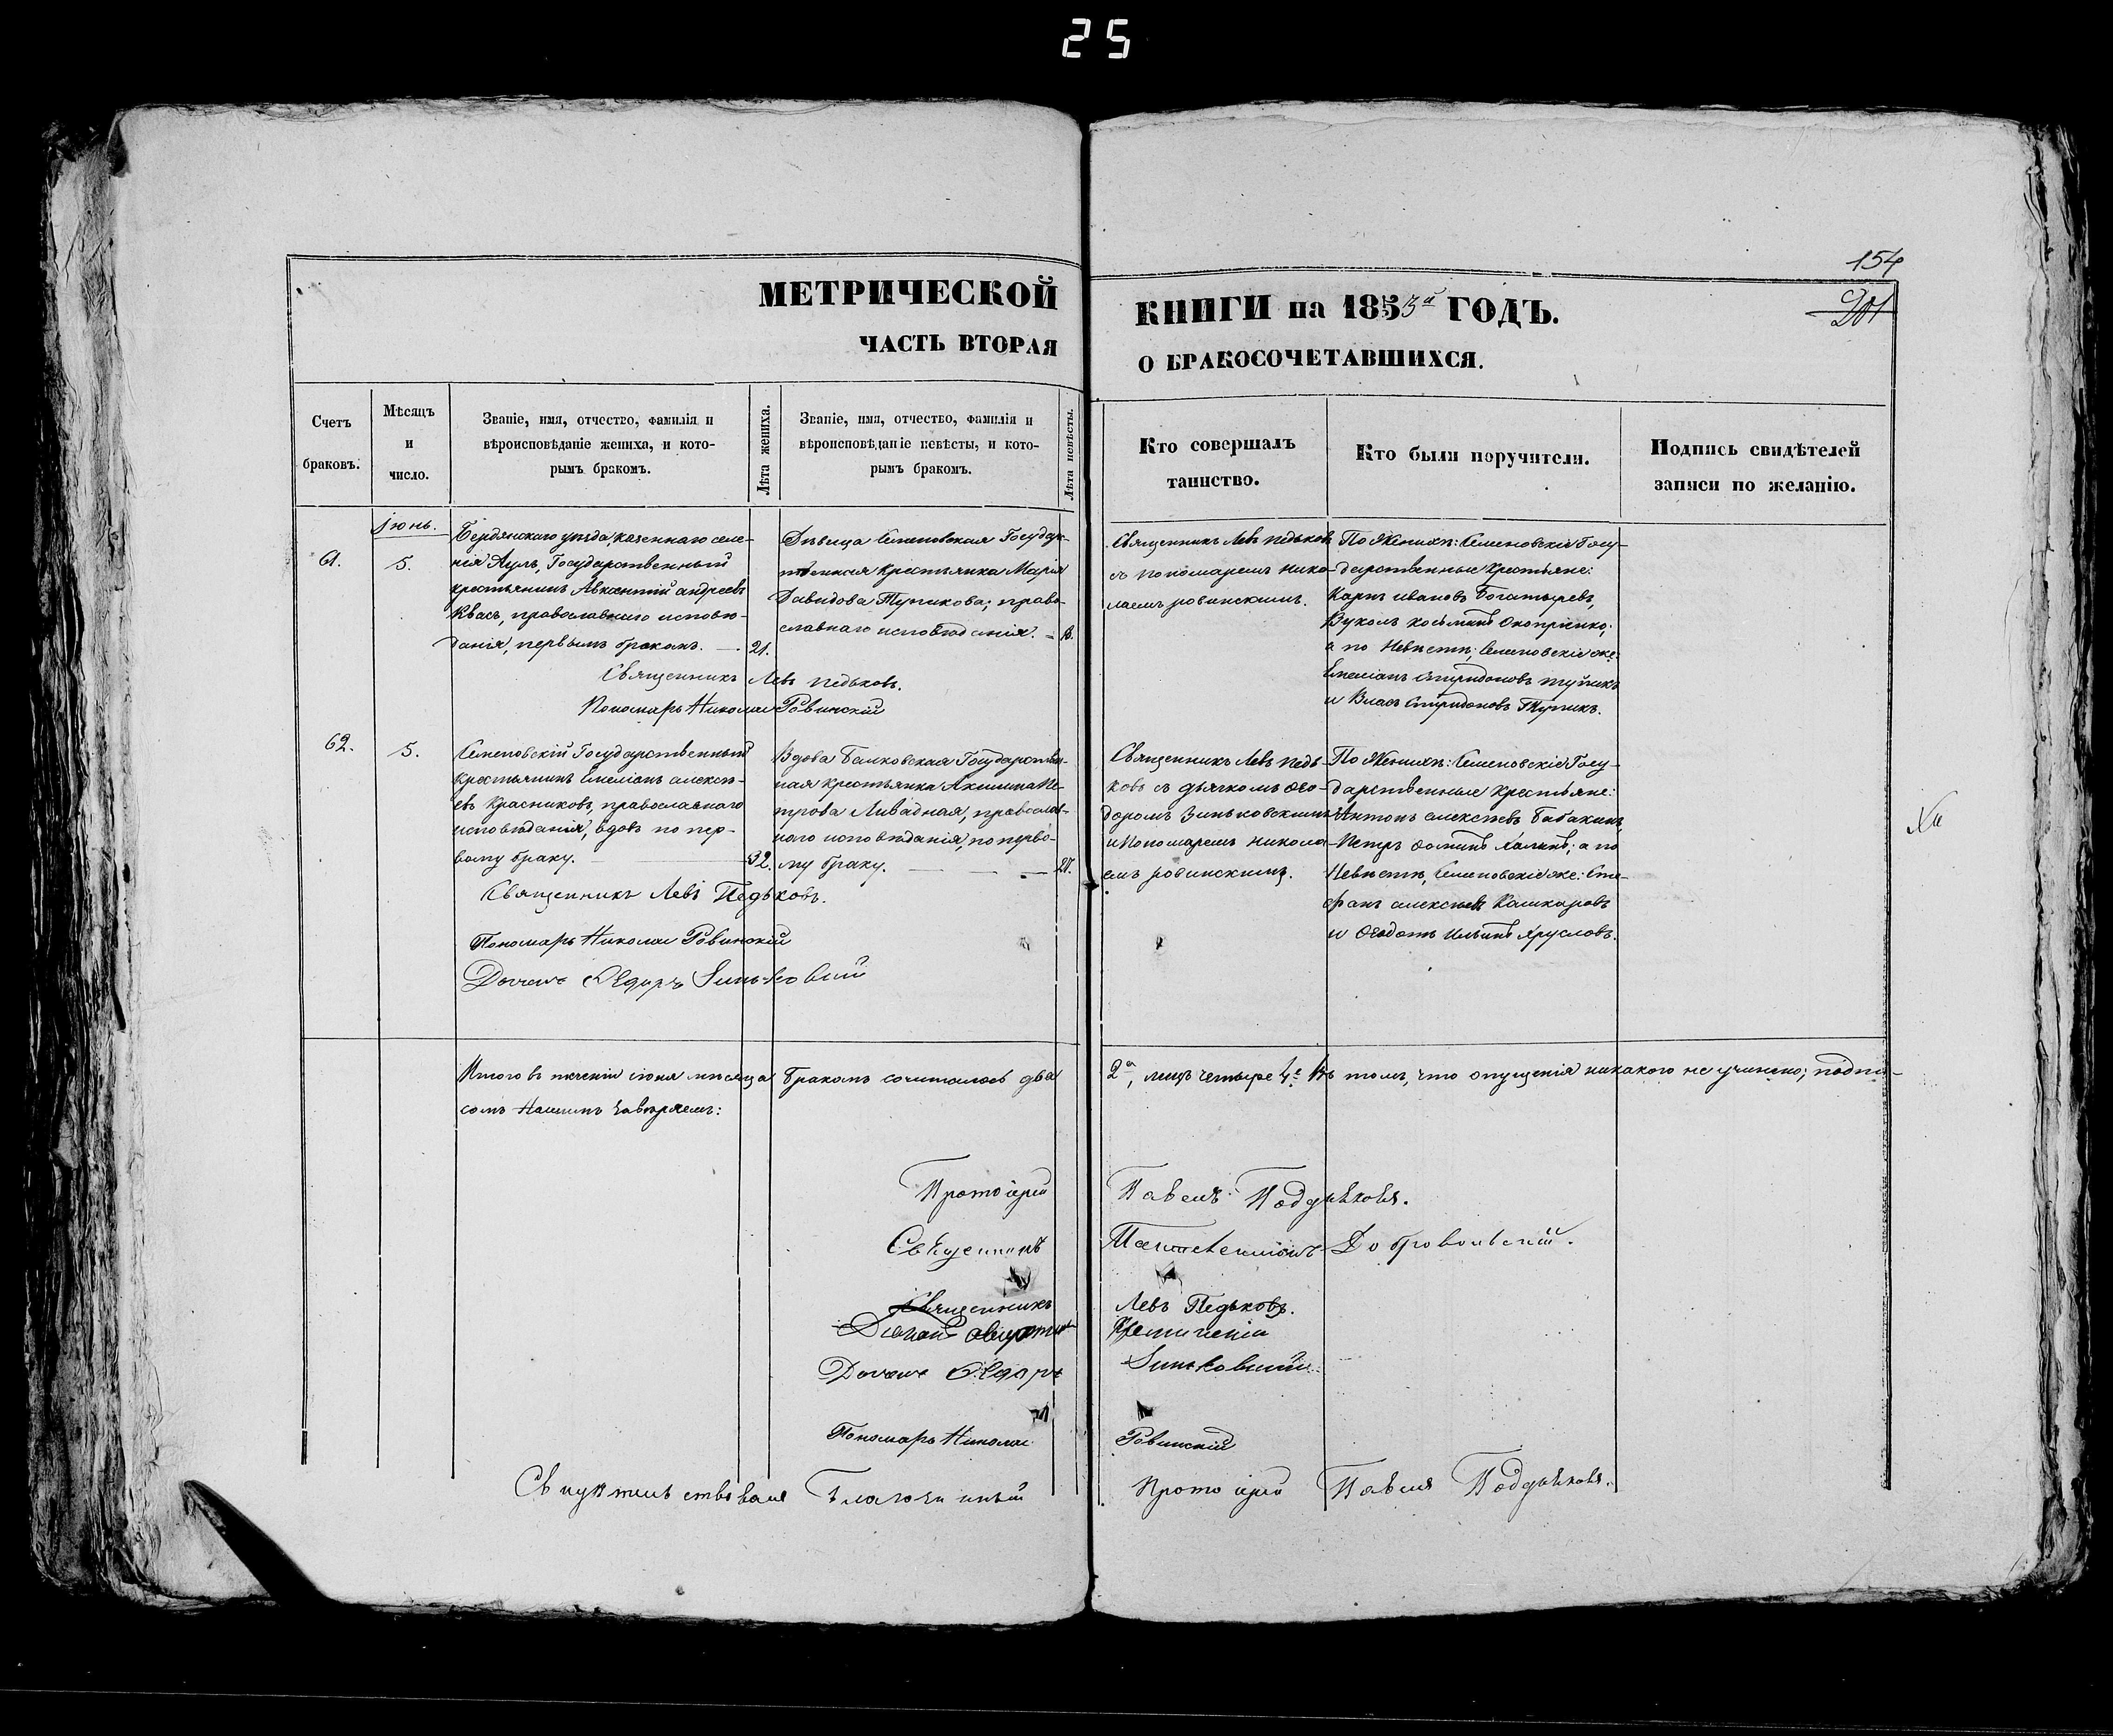 25
154
201
МЕТРИЧЕСКОЙ
ЧАСТЬ ВТОРАЯ
КНИГИ на 1853й ГОДЪ.
О БРАКОСОЧЕТАВШИХСЯ.
Счетъ
браковъ.
Мѣсяцъ
и
число.
Званіе, имя, отчество, фамилія и
вѣроисповѣданіе жениха, и кото-
рымъ бракомъ.
Лѣта жениха.
Званіе, имя, отчество, фамилія и
вѣроисповѣданіе невѣсты, и кото-
рымъ бракомъ.
Лѣта невѣсты.
Кто совершалъ
таинство.
Кто были поручители.
Подпись свидѣтелей
записи по желанію.
Іюнь.
61.
5.
Бердянскаго уѣзда, казеннаго селе-
нія Аулъ, Государственный
крестьянинъ Авксентій андреевъ
Квасъ, православнаго исповѣ-
данія, первымъ бракомъ.
21.
Дѣвица Семеновская Государ-
твенная крестьянка Марія
Давидова Тупикова; право-
славнаго исповѣданія.
Священникъ Левъ Педьковъ
съ пономаремъ Нико-
лаемъ ровинскимъ.
По Женихѣ: Семеновскіе Госу-
дарственные Крестьяне:
Карпъ ивановъ Богатыревъ,
Вуколъ косьминъ Оноприенко;
а по Невѣстѣ; Семеновскіе же:
Емеліанъ спиридоновъ тупикъ
и Власъ спиридоновъ Тупикъ.
Священникъ Левъ Педьковъ.
Пономарь Николай Ровинскій
62.
5.
Семеновскій Государственный
крестьянинъ Емеліанъ алексѣ-
евъ Красниковъ, православнаго
исповѣданія, вдовъ по пер-
вому браку.
32.
Вдова Балковская Государствен-
ная крестьянка Акилина Пе-
трова Ливадная, православ-
наго исповѣданія, по перво-
му браку.
27.
Священникъ Левъ Педь-
ковъ съ дьячкомъ Ѳео-
доромъ Зиньковскимъ
и Пономаремъ Никола-
емъ ровинскимъ.
По Женихѣ: Семеновскіе Госу-
дарственные Крестьяне:
Антонъ алексѣевъ Бабакинъ,
Петръ ѳоминъ Халинъ; а по
Невѣстѣ, Семеновскіе же: Сте-
фанъ алексѣевъ Кашкаровъ
и Ѳеодотъ Ильинъ Ярусловъ.
Священникъ Левъ Педьковъ.
Пономарь Николай Ровинскій
Дьячекъ Ѳедоръ Зиньковскій
Итого въ теченіи іюня мѣсяца бракомъ сочиталось два 2а, лицъ четыре 4е. Въ томъ, что опущенія никакого не учинено; подпи-
сомъ Нашимъ завѣряемъ:
Протоіерей Павелъ Поддьяковъ.
Священникъ Добровольскій.
Священникъ Левъ Педьковъ.
Дьячекъ Ѳедоръ Зиньковскій
Пономарь Николай Ровинскій
Свидѣтельствовалъ Благочинный Протоіерей Павелъ Поддьяковъ.